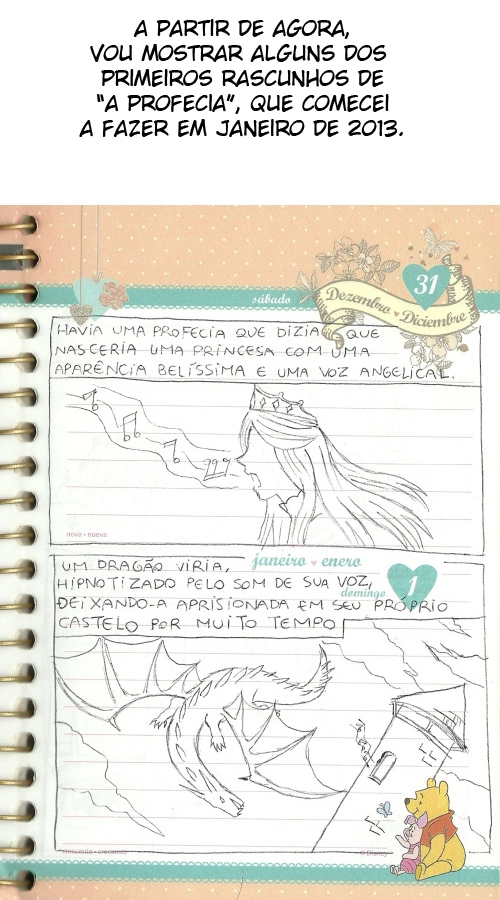 A PARTIR DE AGORA,
VOU MOSTRAR ALGUNS DOS
PRIMEIROS RASCUNHOS DE
"A PROFECIA", QUE COMECEI
A FAZER EM JANEIRO DE 2013.
31
sábado
Dezembro ♥ Diciembre
HAVIA UMA PROFECIA QUE DIZIA QUE
NASCERIA UMA PRINCESA COM UMA
APARÊNCIA BELÍSSIMA E UMA VOZ ANGELICAL.
nova • nueva
janeiro ♥ enero
1
domingo
UM DRAGÃO VIRIA,
HIPNOTIZADO PELO SOM DE SUA VOZ,
DEIXANDO-A APRISIONADA EM SEU PRÓPRIO
CASTELO POR MUITO TEMPO
crescente • creciente
© Disney